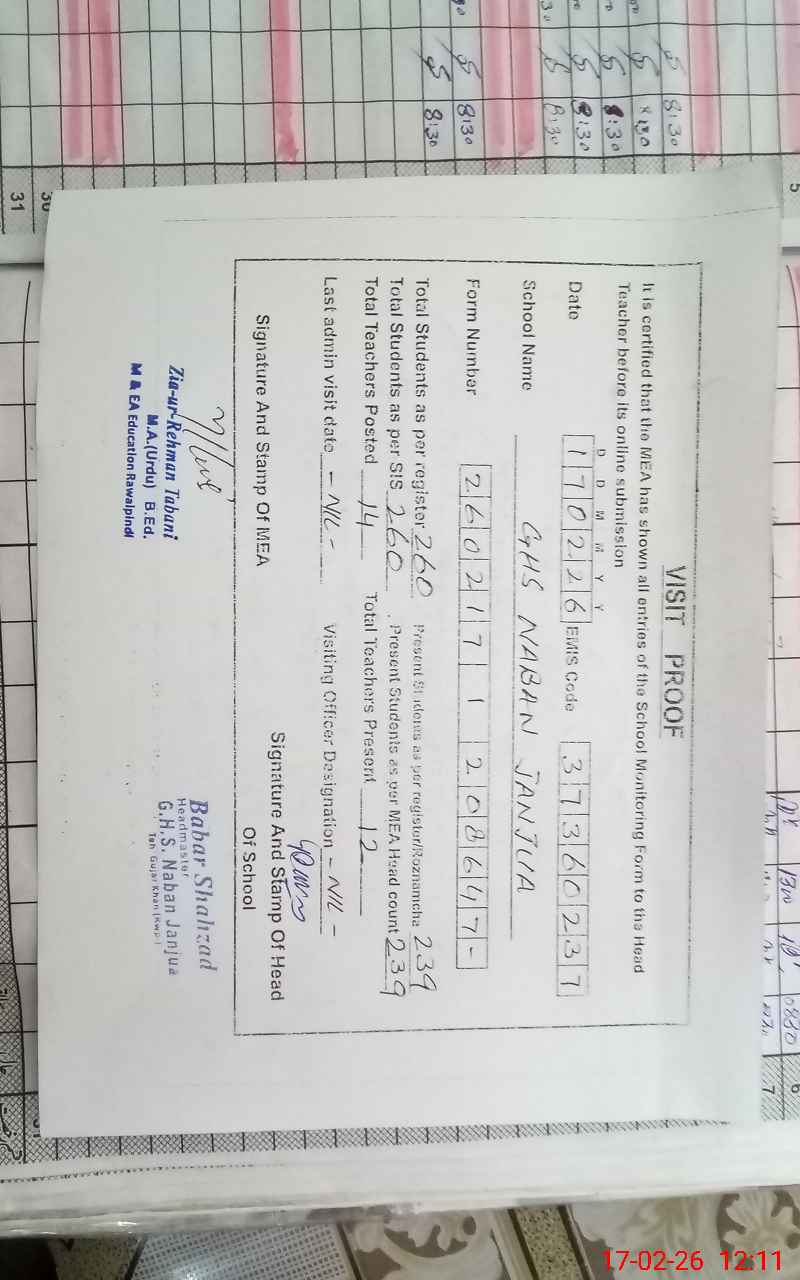 VISIT PROOF
It is certified that the MEA has shown all entries of the School Monitoring Form to the Head
Teacher before its online submission
D D M M Y Y
Date 170226 EMIS Code 37360237
School Name GHS NABAN JANJUA
Form Number 2602171 208647-
Total Students as per register 260 Present Students as per register/Roznamcha 239
Total Students as per SIS 260 Present Students as per MEA Head count 239
Total Teachers Posted 14 Total Teachers Present 12
Last admin visit date - NIL - Visiting Officer Designation - NIL -
Signature And Stamp Of MEA
Signature And Stamp Of Head
Of School
Zia-ur-Rehman Tabani
M.A.(Urdu) B.Ed.
M & EA Education Rawalpindi
Babar Shahzad
Headmaster
G.H.S. Naban Janjua
Teh Gujar Khan (Rwp.)
8:30
8:30
8:30
8:30
8:30
8:30
8:30
31
30
5
6
7
0830
17-02-26 12:11